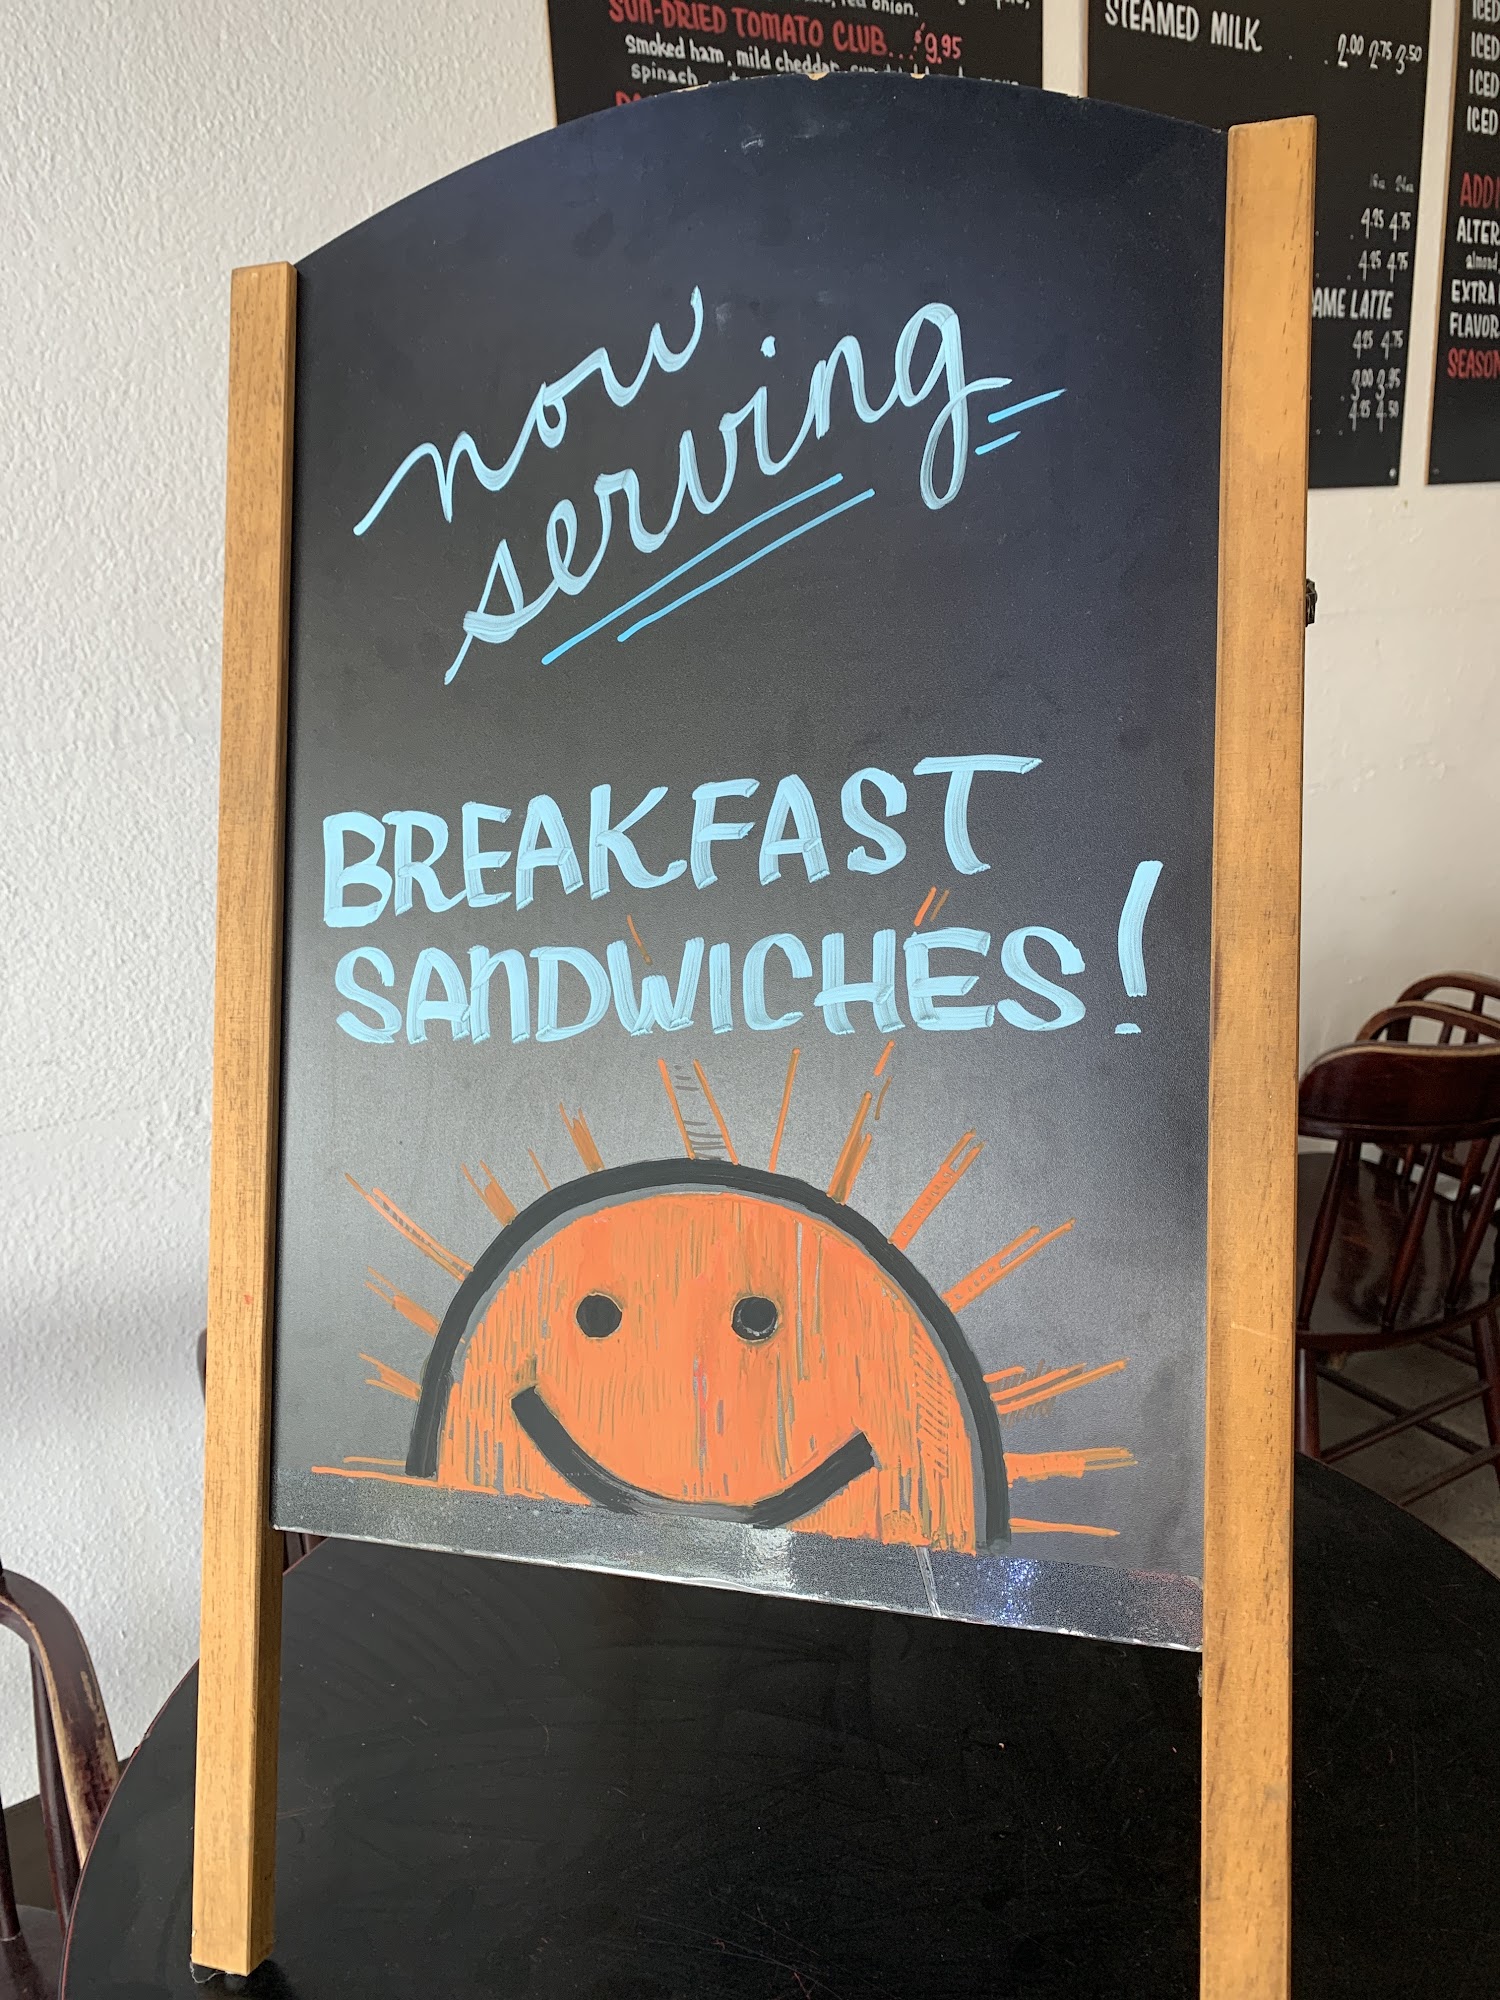 now
serving
BREAKFAST
SANDWICHES!
red onion.
SUN-DRIED TOMATO CLUB...$9.95
Smoked ham, mild cheddar,
spinach
STEAMED MILK . . 2.00 2.75 3.50
16oz 24oz
. 4.25 4.75
. 4.25 4.75
AME LATTE
4.25 4.75
3.00 3.95
4.25 4.50
ICED
ICED
ICED
ICED
ADD
ALTER
almond,
EXTRA
FLAVOR
SEASON